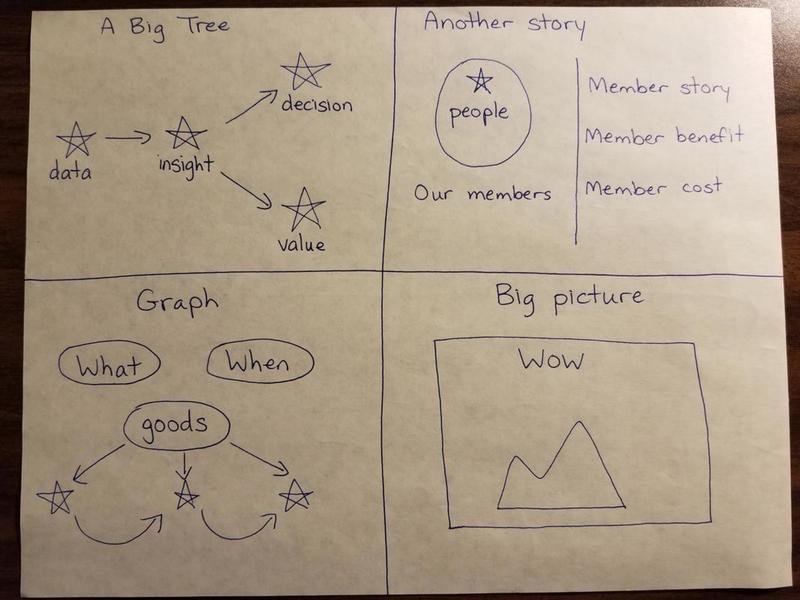 A Big Tree
decision
data
insight
value
Another story
people
Our members
Member story
Member benefit
Member cost
Graph
What
When
goods
Big picture
Wow